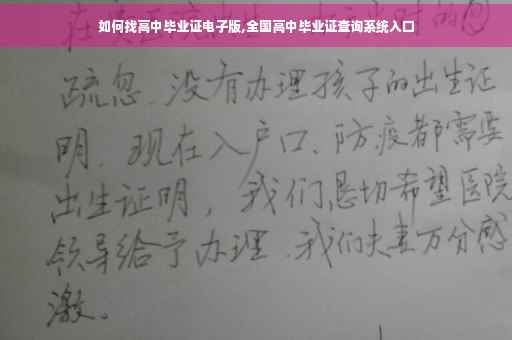 如何找高中毕业证电子版,全国高中毕业证查询系统入口
疏忽.没有办理孩子的出生证
明.现在入户口、防疫都需要
出生证明,我们恳切希望医院
领导给予办理.我们夫妻万分感
激。